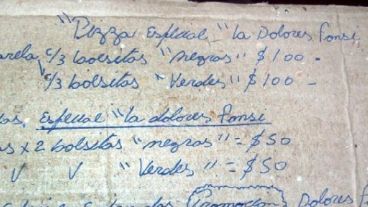 "Pizza Especial" "la Dolores Fonsi
arela c/3 bolsitas "negras" $100.-
c/3 bolsitas "Verdes" $100-
as. Especial "la dolores Fonsi
as x 2 bolsitas "negras" = $50
√ √ "Verdes" = $50
Promocion Dolores F